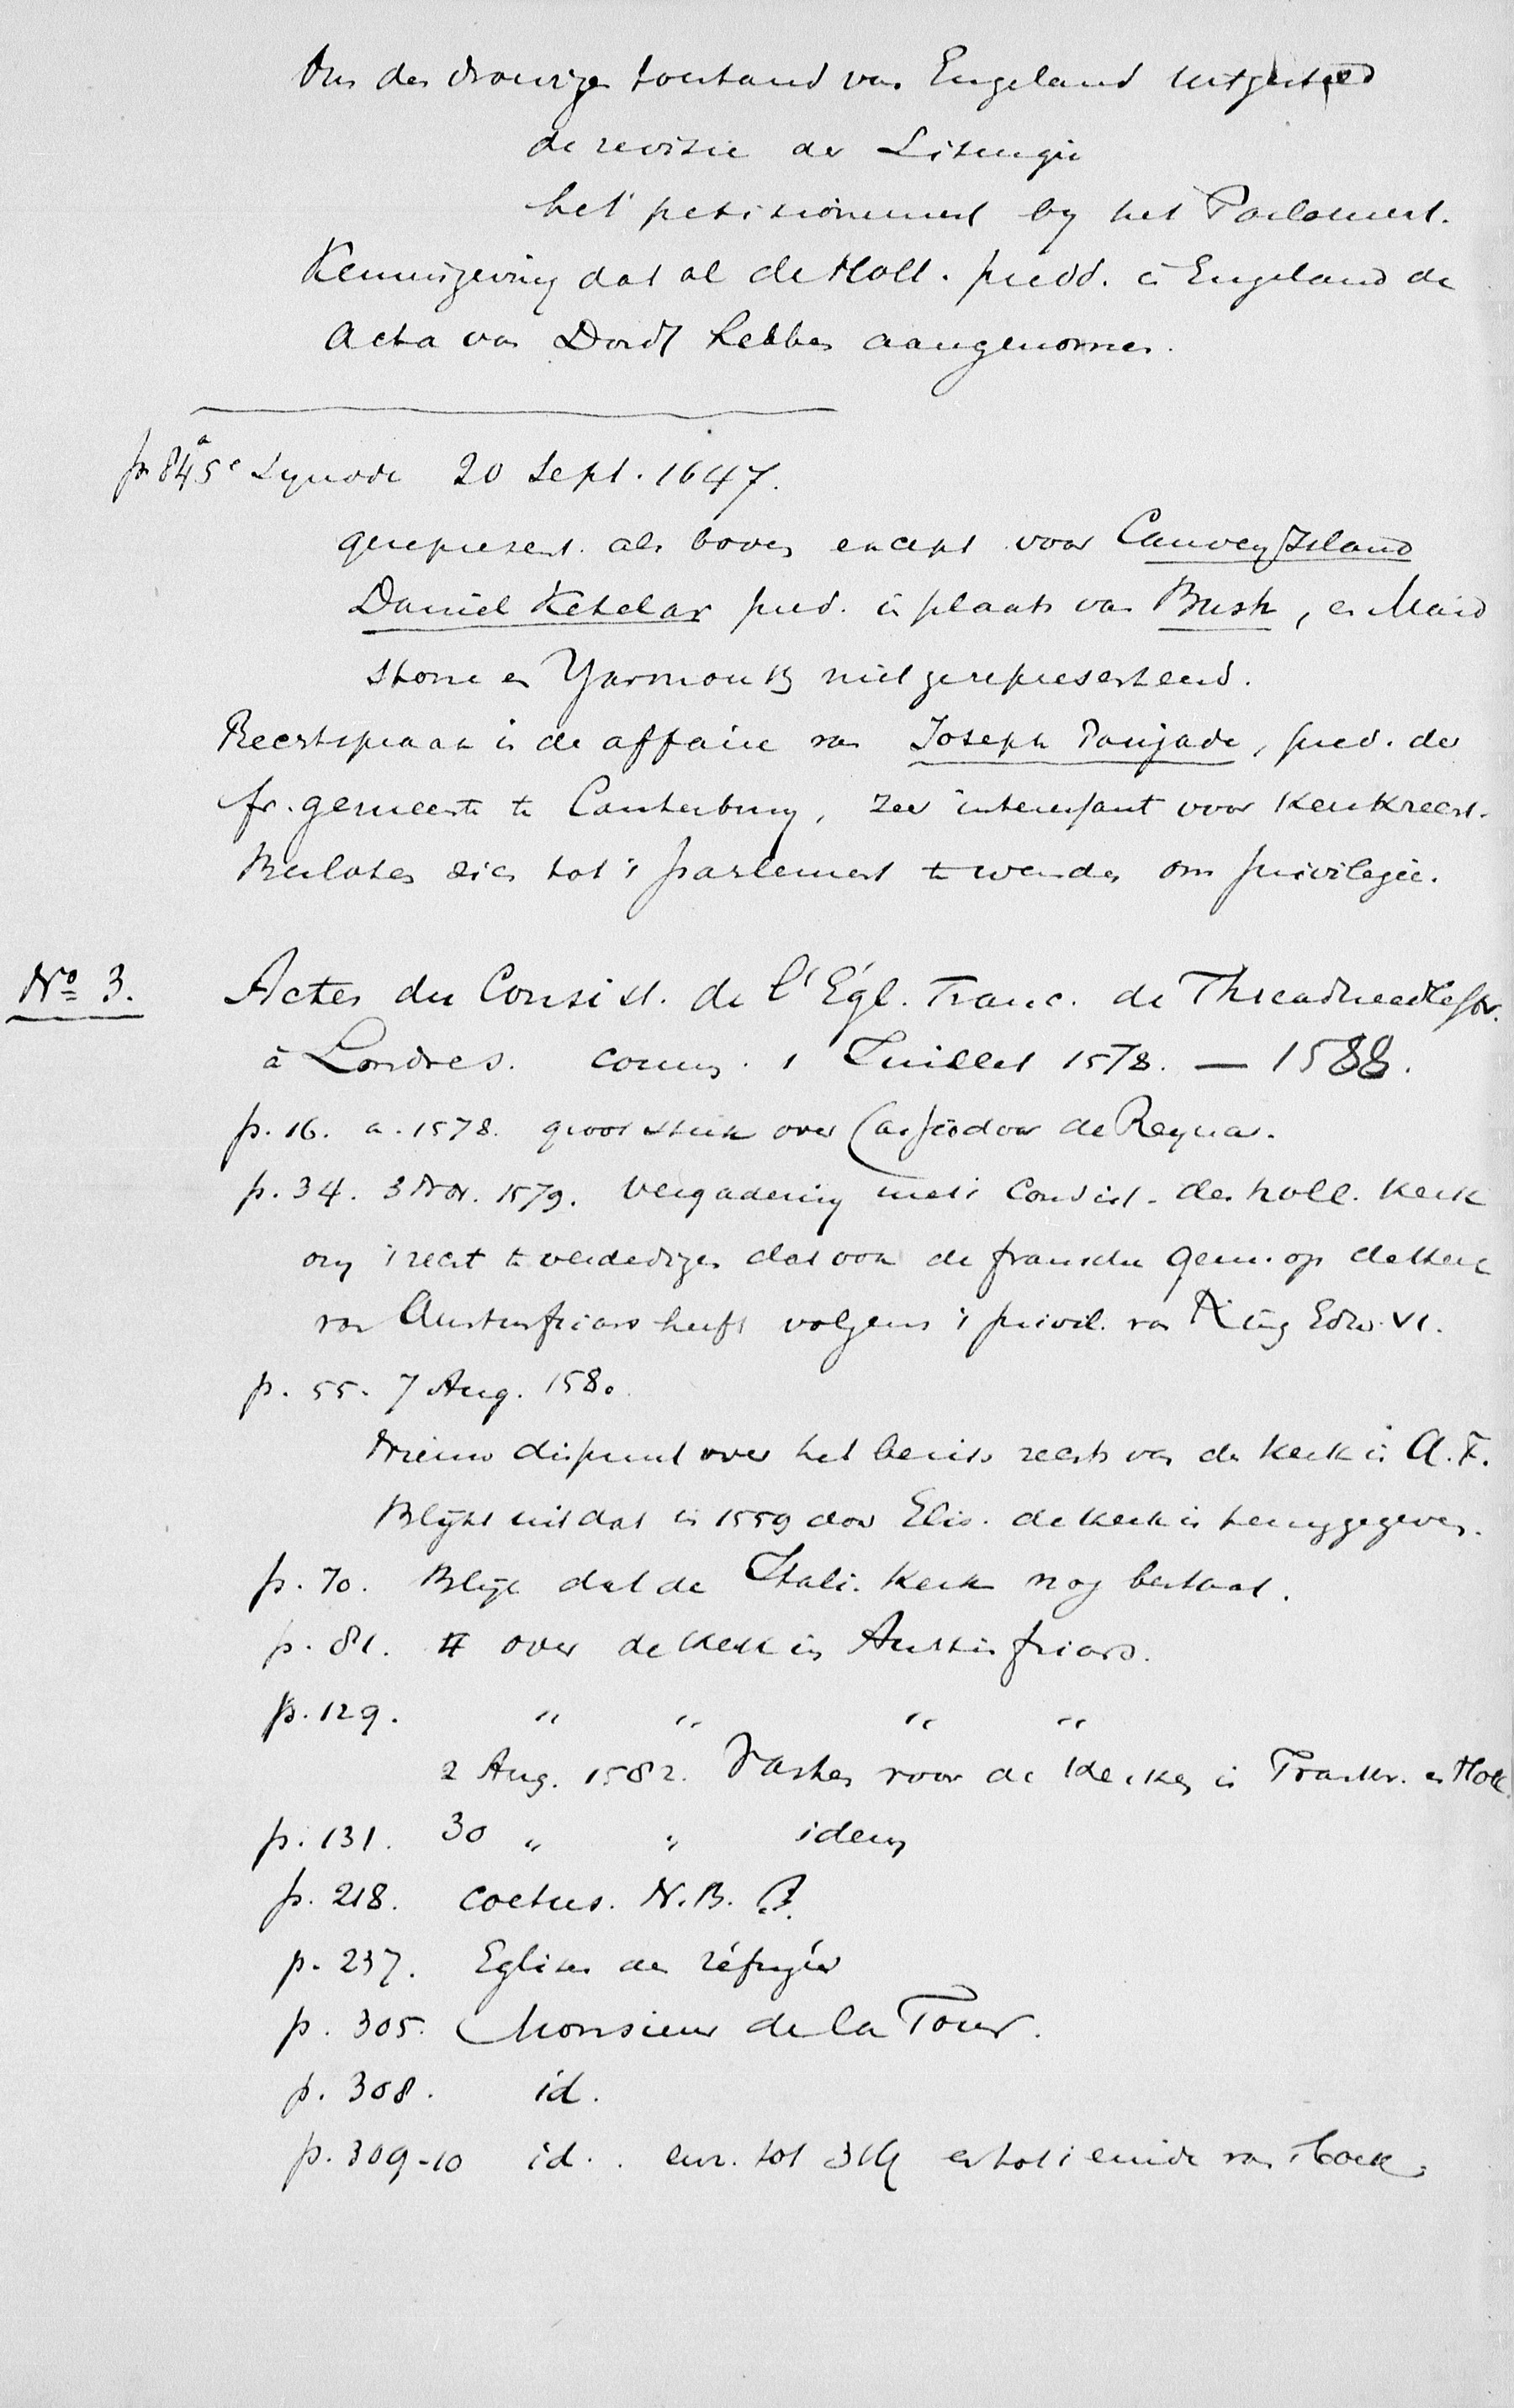 Om den droevigen toestand van Engeland uitgesteld
de revisie der Liturgie
het petitionement by het Parlement.
Kennisgeving dat al de Holl. predd. in Engeland de
Acta van Dordt hebben aangenomen.
p. 84a 5e Synode 20 Sept. 1647.
gerepresent. als boven except voor Canvey Island
Daniel Ketelar pred. in plaats van Bush, en Maid
stone en Yarmouth niet gerepresenteerd.
Rechtspraak in de affaire van Joseph Poujade, pred. der
fr. gemeente te Canterbury, zeer interessant voor Kerkrecht.
Besloten zich tot 't parlement te wenden om privilegie.
No 3. Actes du Consist. de l'Égl. Franc. de Threadneedle Str.
à Londres. comm. 1 Juillet 1578. — 1588.
p. 16. a. 1578. groot stuk over Cassiodor de Reyna.
p. 34. 3 Nov. 1579. Vergadering met 't Consist. der holl. Kerk
om 't recht te verdedigen dat ook de fransche gem. op de kerk
van Austinfriars heeft volgens 't privil. van King Edw. VI.
p. 55. 7 Aug. 1580.
Nieuw dispuut over het bezits recht van de kerk in A.F.
Blijkt uit dat in 1559 door Elis. de kerk is teruggegeven.
p. 70. Blijkt dat de Itali. Kerk nog bestaat.
p. 81. # over de kerk in Austinfriars.
p. 129. " " " "
2 Aug. 1582. Vasten voor de Kerken in Frankr. en Holl.
p. 131. 30 " " idem
p. 218. coetus. N.B. ?
p. 237. Eglises des réfugiés
p. 305. Monsieur de la Tour.
p. 308. id.
p. 309-10 id. . enz. tot 314 en tot 't einde van 't boek.